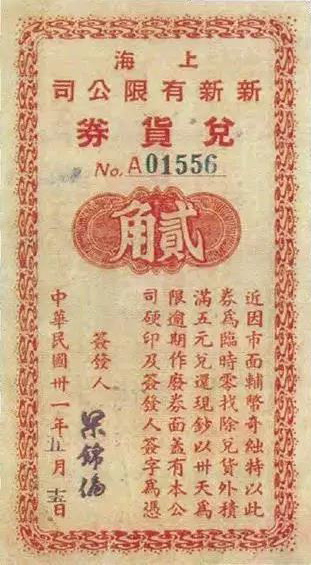 上海
新新有限公司
兌貨券
No. A01556
貳角
近因市面輔幣奇絀特以此
券為臨時零找除兌貨外積
滿五元兌還現鈔以卅天為
限逾期作廢券面蓋有本公
司硬印及簽發人簽字為憑
簽發人
中華民國卅一年五月 日